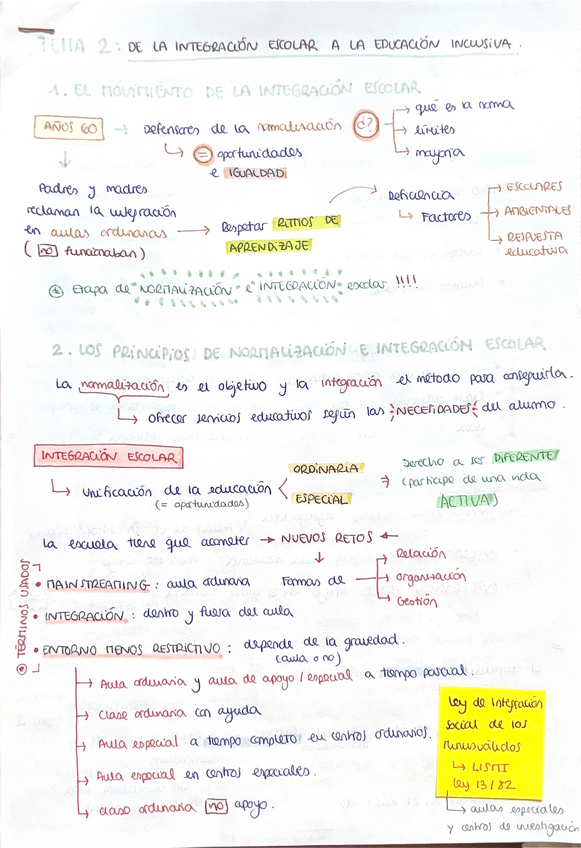 TEMA 2: DE LA INTEGRACIÓN ESCOLAR A LA EDUCACIÓN INCLUSIVA.
1. EL MOVIMIENTO DE LA INTEGRACIÓN ESCOLAR
AÑOS 60 → Defensores de la normalización ¿? → qué es la norma
→ límites
→ mayoría
↳ = oportunidades
e IGUALDAD
Padres y madres
reclaman la integración
en aulas ordinarias → Respetar RITMOS DE
APRENDIZAJE
(NO funcionaban)
Deficiencia
↳ Factores → ESCOLARES
→ AMBIENTALES
→ RESPUESTA
educativa
* Etapa de "NORMALIZACIÓN" e "INTEGRACIÓN" escolar !!!!
2. LOS PRINCIPIOS DE NORMALIZACIÓN E INTEGRACIÓN ESCOLAR
La normalización es el objetivo y la integración el método para conseguirla.
↳ ofrecer servicios educativos según las NECESIDADES del alumno.
INTEGRACIÓN ESCOLAR
↳ Unificación de la educación < ORDINARIA
ESPECIAL
(= oportunidades)
⇒ Derecho a ser DIFERENTE
(partícipe de una vida
ACTIVA)
La escuela tiene que acometer → NUEVOS RETOS ←
↓
Formas de → Relación
→ organización
→ Gestión
* TÉRMINOS USADOS
• MAINSTREAMING: aula ordinaria
• INTEGRACIÓN: dentro y fuera del aula
• ENTORNO MENOS RESTRICTIVO: depende de la gravedad.
(aula o no)
→ Aula ordinaria y aula de apoyo / especial a tiempo parcial.
→ Clase ordinaria con ayuda
→ Aula especial a tiempo completo en centros ordinarios.
→ Aula especial en centros especiales.
→ clase ordinaria NO apoyo.
Ley de Integración
Social de los
Minusválidos
↳ LISMI
ley 13/82
↳ aulas especiales
y centros de investigación